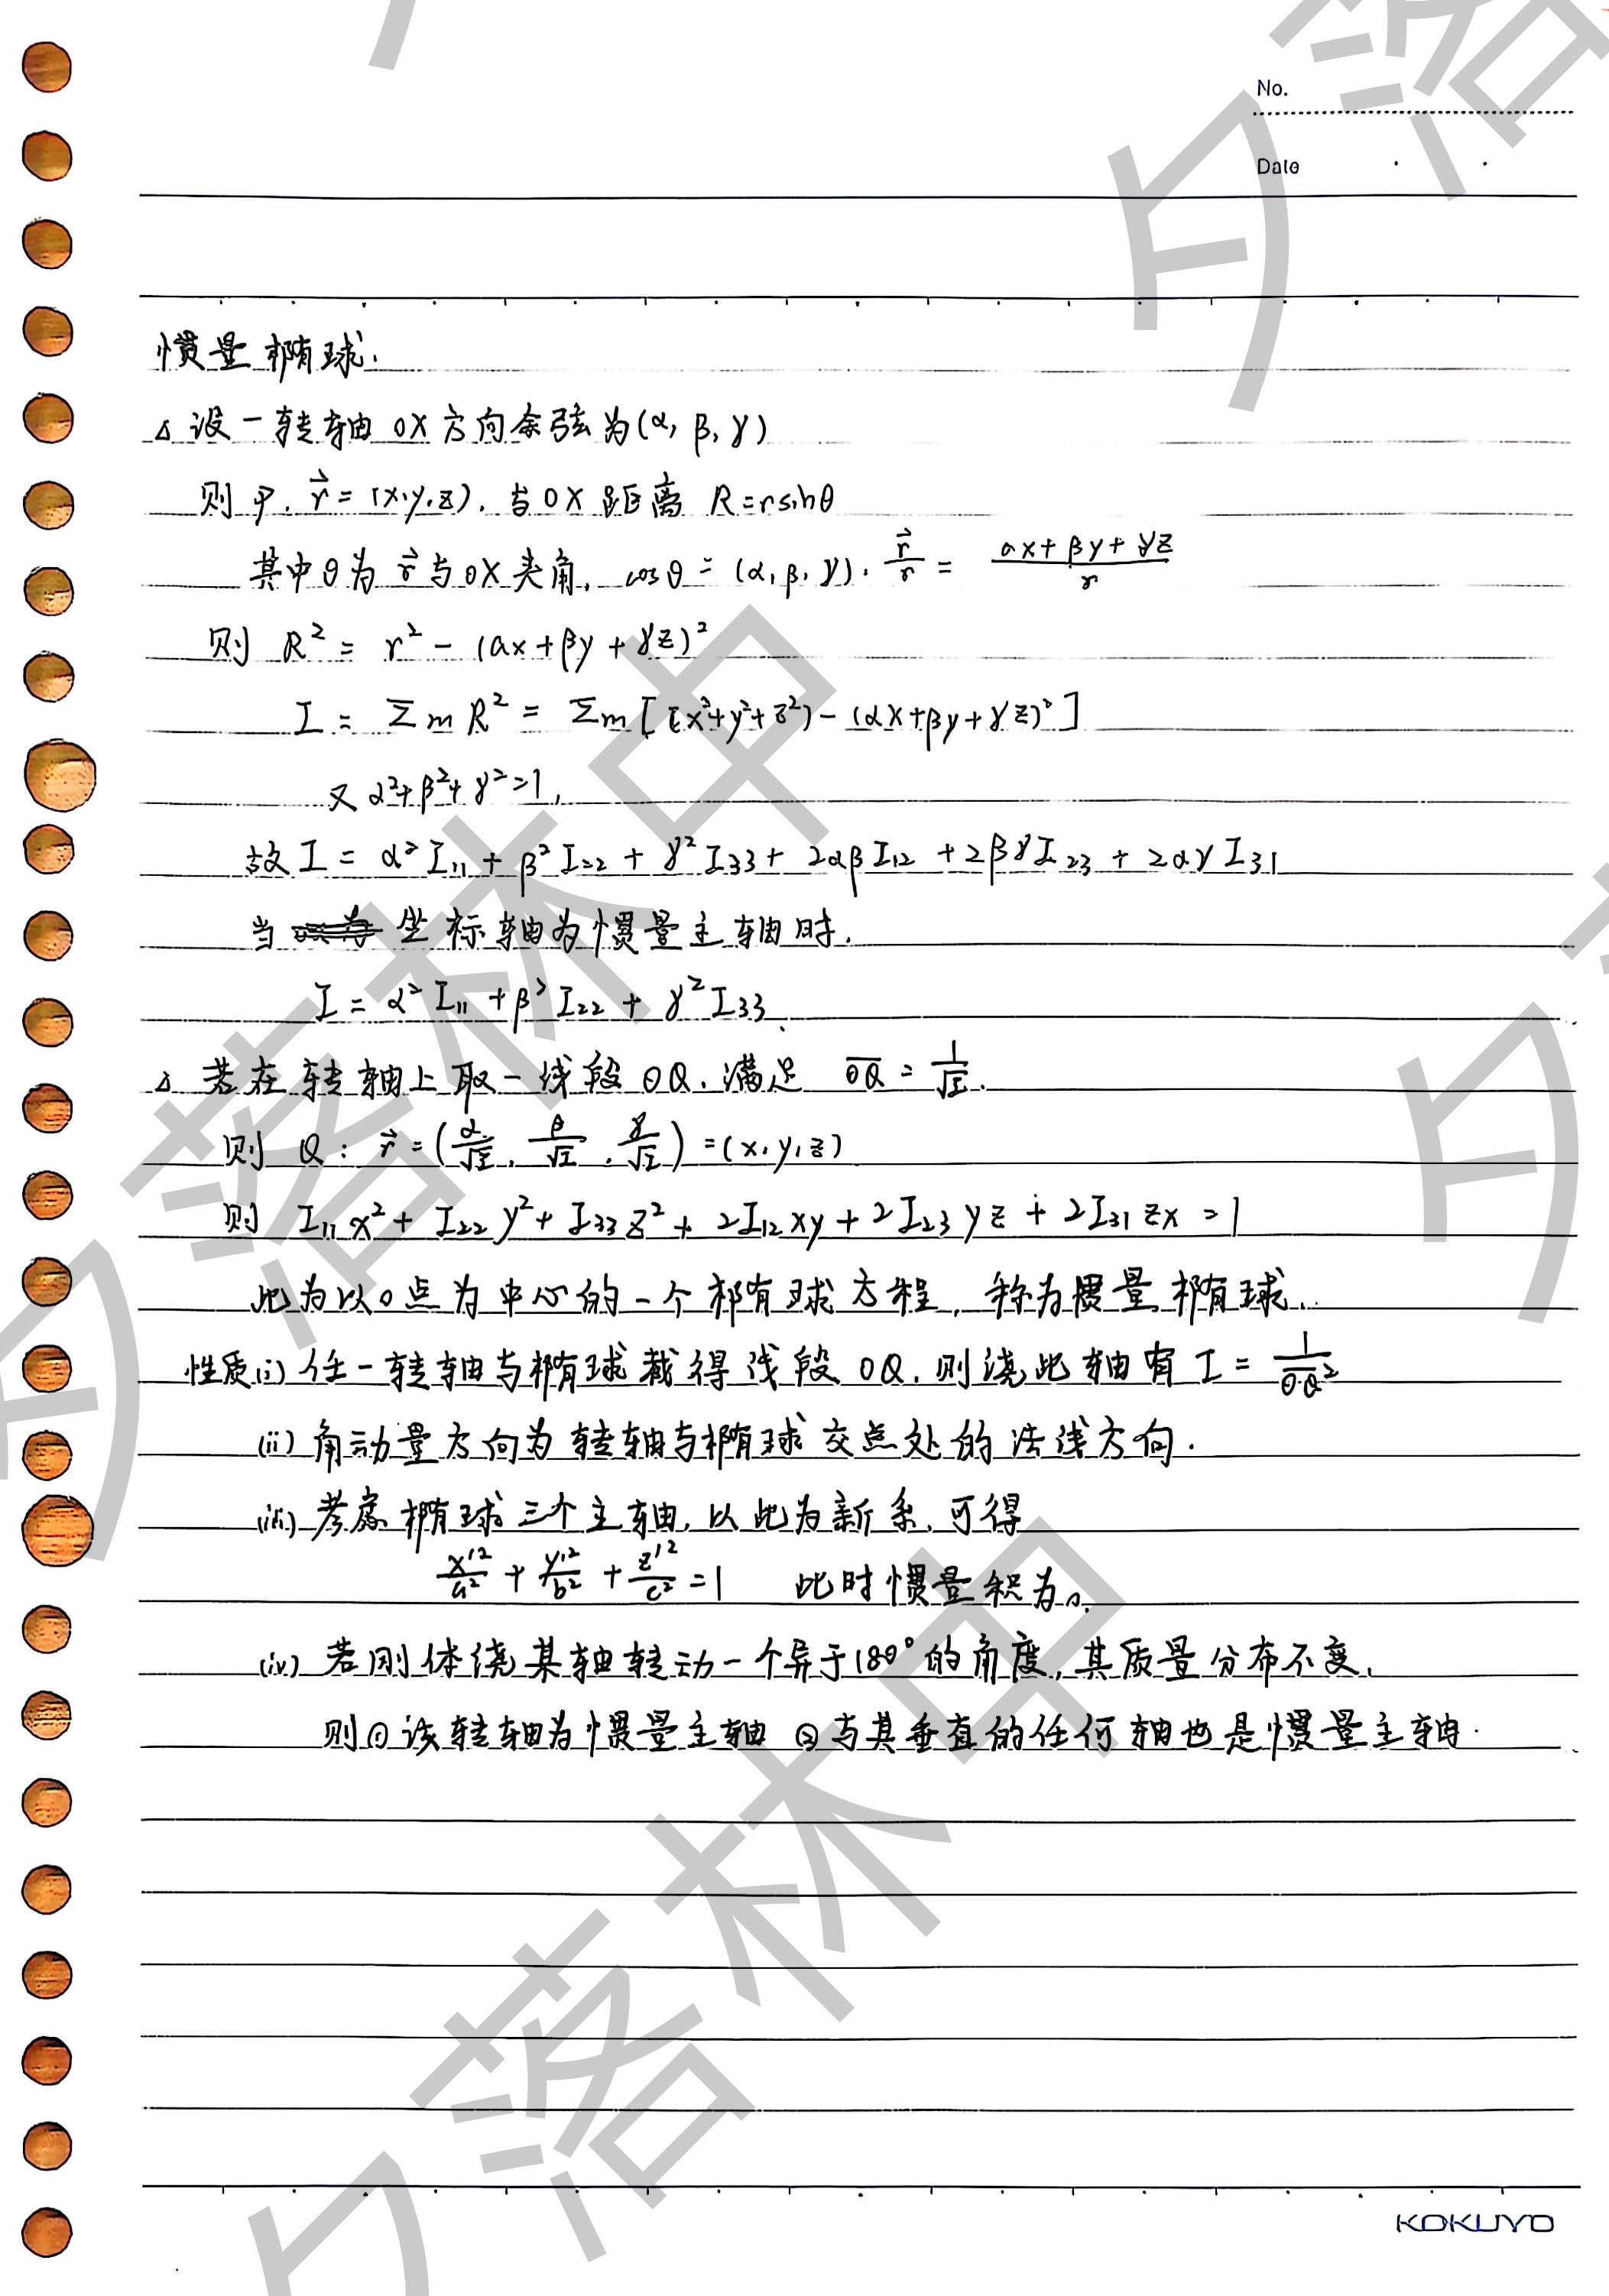 No.
Date
惯量椭球.
△ 设一转轴 OX 方向余弦为(α, β, γ)
则 P. r⃗ = (x,y,z). 与OX 距离 R=rsinθ
其中θ为 r⃗ 与OX夹角, cosθ = (α, β, γ)· r⃗/r = (αx+βy+γz)/r
则 R² = r² - (αx+βy+γz)²
I = Σ m R² = Σm [(x²+y²+z²)-(αx+βy+γz)²]
又 α²+β²+γ²=1,
故 I = α² I₁₁ + β² I₂₂ + γ² I₃₃ + 2αβ I₁₂ + 2βγ I₂₃ + 2αγ I₃₁
当 坐标轴为惯量主轴时.
I = α² I₁₁ + β² I₂₂ + γ² I₃₃.
△ 若在转轴上取一线段 OQ. 满足 O̅Q̅ = 1/√I.
则 Q: r⃗ = (α/√I, β/√I, γ/√I) = (x, y, z)
则 I₁₁x² + I₂₂y² + I₃₃z² + 2I₁₂xy + 2I₂₃yz + 2I₃₁zx = 1
此为以O点为中心的一个椭球方程, 称为惯量椭球.
性质(i) 任一转轴与椭球截得线段 OQ. 则浇此轴有 I = 1/O̅Q̅²
(ii) 角动量方向为转轴与椭球交点处的法线方向.
(iii) 考虑椭球三个主轴, 以此为新系, 可得
x'²/a² + y'²/b² + z'²/c² = 1 此时惯量积为0.
(iv) 若刚体绕某轴转动一个异于180°的角度, 其质量分布不变,
则①该转轴为惯量主轴 ②与其垂直的任何轴也是惯量主轴.
KOKUYO
夕落林中
夕落林中